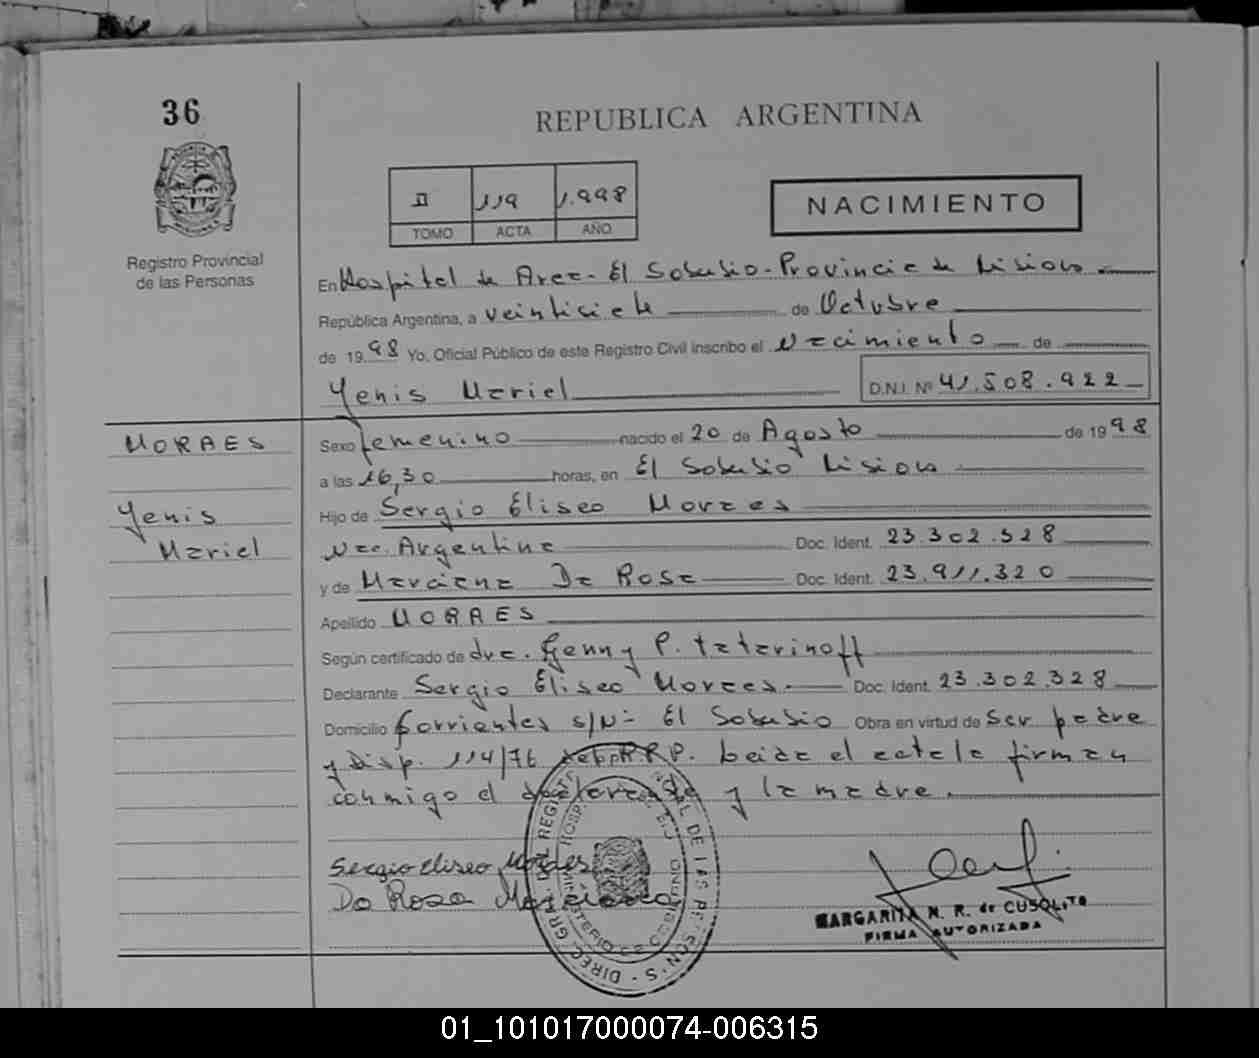 36
REPUBLICA ARGENTINA
II 119 1.998
TOMO ACTA AÑO
NACIMIENTO
Registro Provincial
de las Personas
En Hospital de Area - El Soberbio - Provincia de Misiones
República Argentina, a veintisiete de Octubre
de 1998 Yo, Oficial Público de este Registro Civil inscribo el Nacimiento de
Yenis Mariel D.N.I. Nº 41.508.922
MORAES
Yenis
Mariel
Sexo femenino nacido el 20 de Agosto de 1998
a las 16,30 horas, en El Soberbio Misiones
Hijo de Sergio Eliseo Moraes
Nac. Argentina Doc. Ident. 23.302.328
y de Marciana Da Rosa Doc. Ident. 23.911.320
Apellido MORAES
Según certificado de dra. Genny P. Tatarinoff
Declarante Sergio Eliseo Moraes Doc. Ident. 23.302.328
Domicilio Corrientes s/Nº El Soberbio Obra en virtud de Ser padre
y Disp. 114/76 R.P. Leida el acta la firman
conmigo el declarante y la madre.
Sergio eliseo Moraes
Da Rosa Marciana
MARGARITA N. R. de CUSOLITO
FIRMA AUTORIZADA
01_101017000074-006315